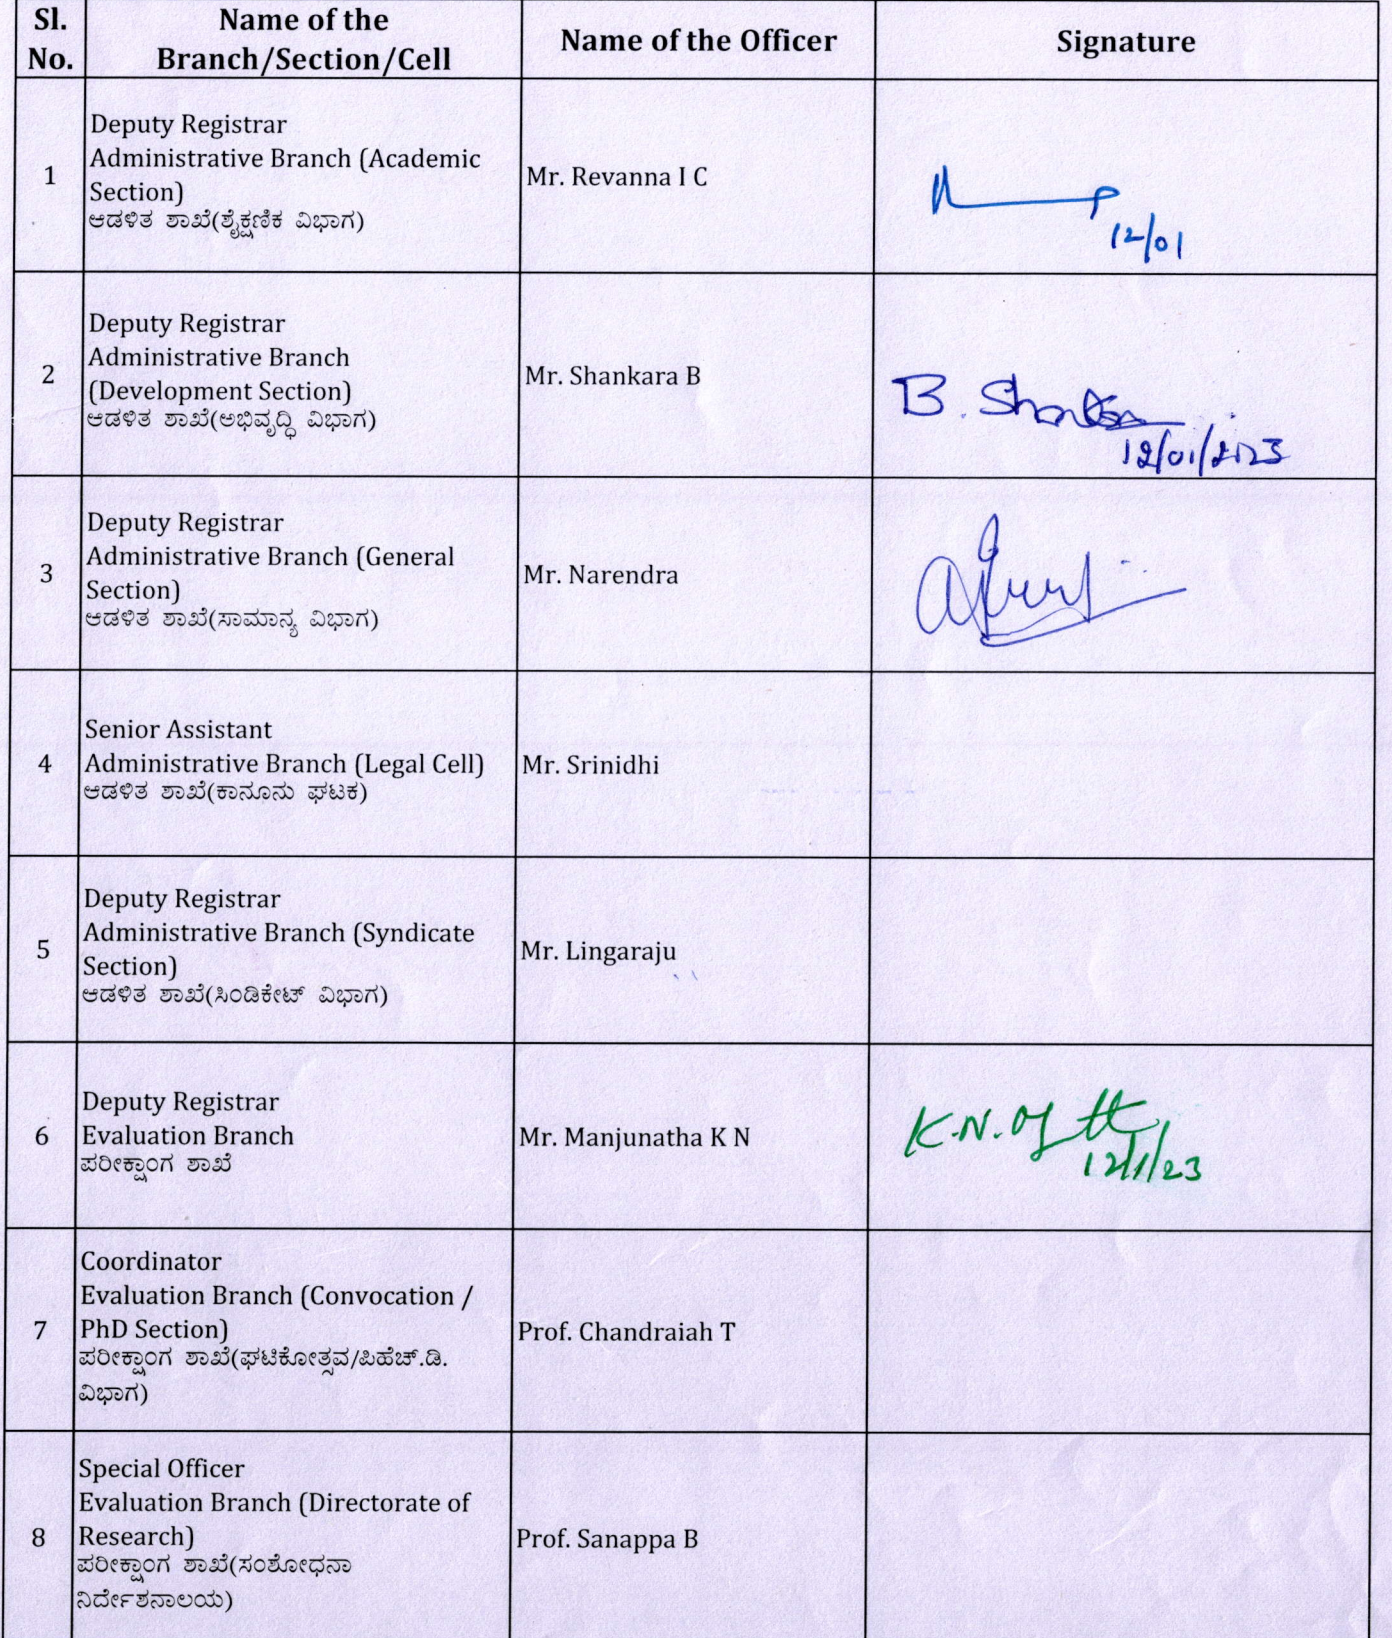 Sl. No.
Name of the
Branch/Section/Cell
Name of the Officer
Signature
1
Deputy Registrar
Administrative Branch (Academic
Section)
ಆಡಳಿತ ಶಾಖೆ(ಶೈಕ್ಷಣಿಕ ವಿಭಾಗ)
Mr. Revanna I C
12/01
2
Deputy Registrar
Administrative Branch
(Development Section)
ಆಡಳಿತ ಶಾಖೆ(ಅಭಿವೃದ್ಧಿ ವಿಭಾಗ)
Mr. Shankara B
B.
12/01/2023
3
Deputy Registrar
Administrative Branch (General
Section)
ಆಡಳಿತ ಶಾಖೆ(ಸಾಮಾನ್ಯ ವಿಭಾಗ)
Mr. Narendra
4
Senior Assistant
Administrative Branch (Legal Cell)
ಆಡಳಿತ ಶಾಖೆ(ಕಾನೂನು ಘಟಕ)
Mr. Srinidhi
5
Deputy Registrar
Administrative Branch (Syndicate
Section)
ಆಡಳಿತ ಶಾಖೆ(ಸಿಂಡಿಕೇಟ್ ವಿಭಾಗ)
Mr. Lingaraju
6
Deputy Registrar
Evaluation Branch
ಪರೀಕ್ಷಾಂಗ ಶಾಖೆ
Mr. Manjunatha K N
K.N.
12/1/23
7
Coordinator
Evaluation Branch (Convocation /
PhD Section)
ಪರೀಕ್ಷಾಂಗ ಶಾಖೆ(ಘಟಿಕೋತ್ಸವ/ಪಿಹೆಚ್.ಡಿ.
ವಿಭಾಗ)
Prof. Chandraiah T
8
Special Officer
Evaluation Branch (Directorate of
Research)
ಪರೀಕ್ಷಾಂಗ ಶಾಖೆ(ಸಂಶೋಧನಾ
ನಿರ್ದೇಶನಾಲಯ)
Prof. Sanappa B